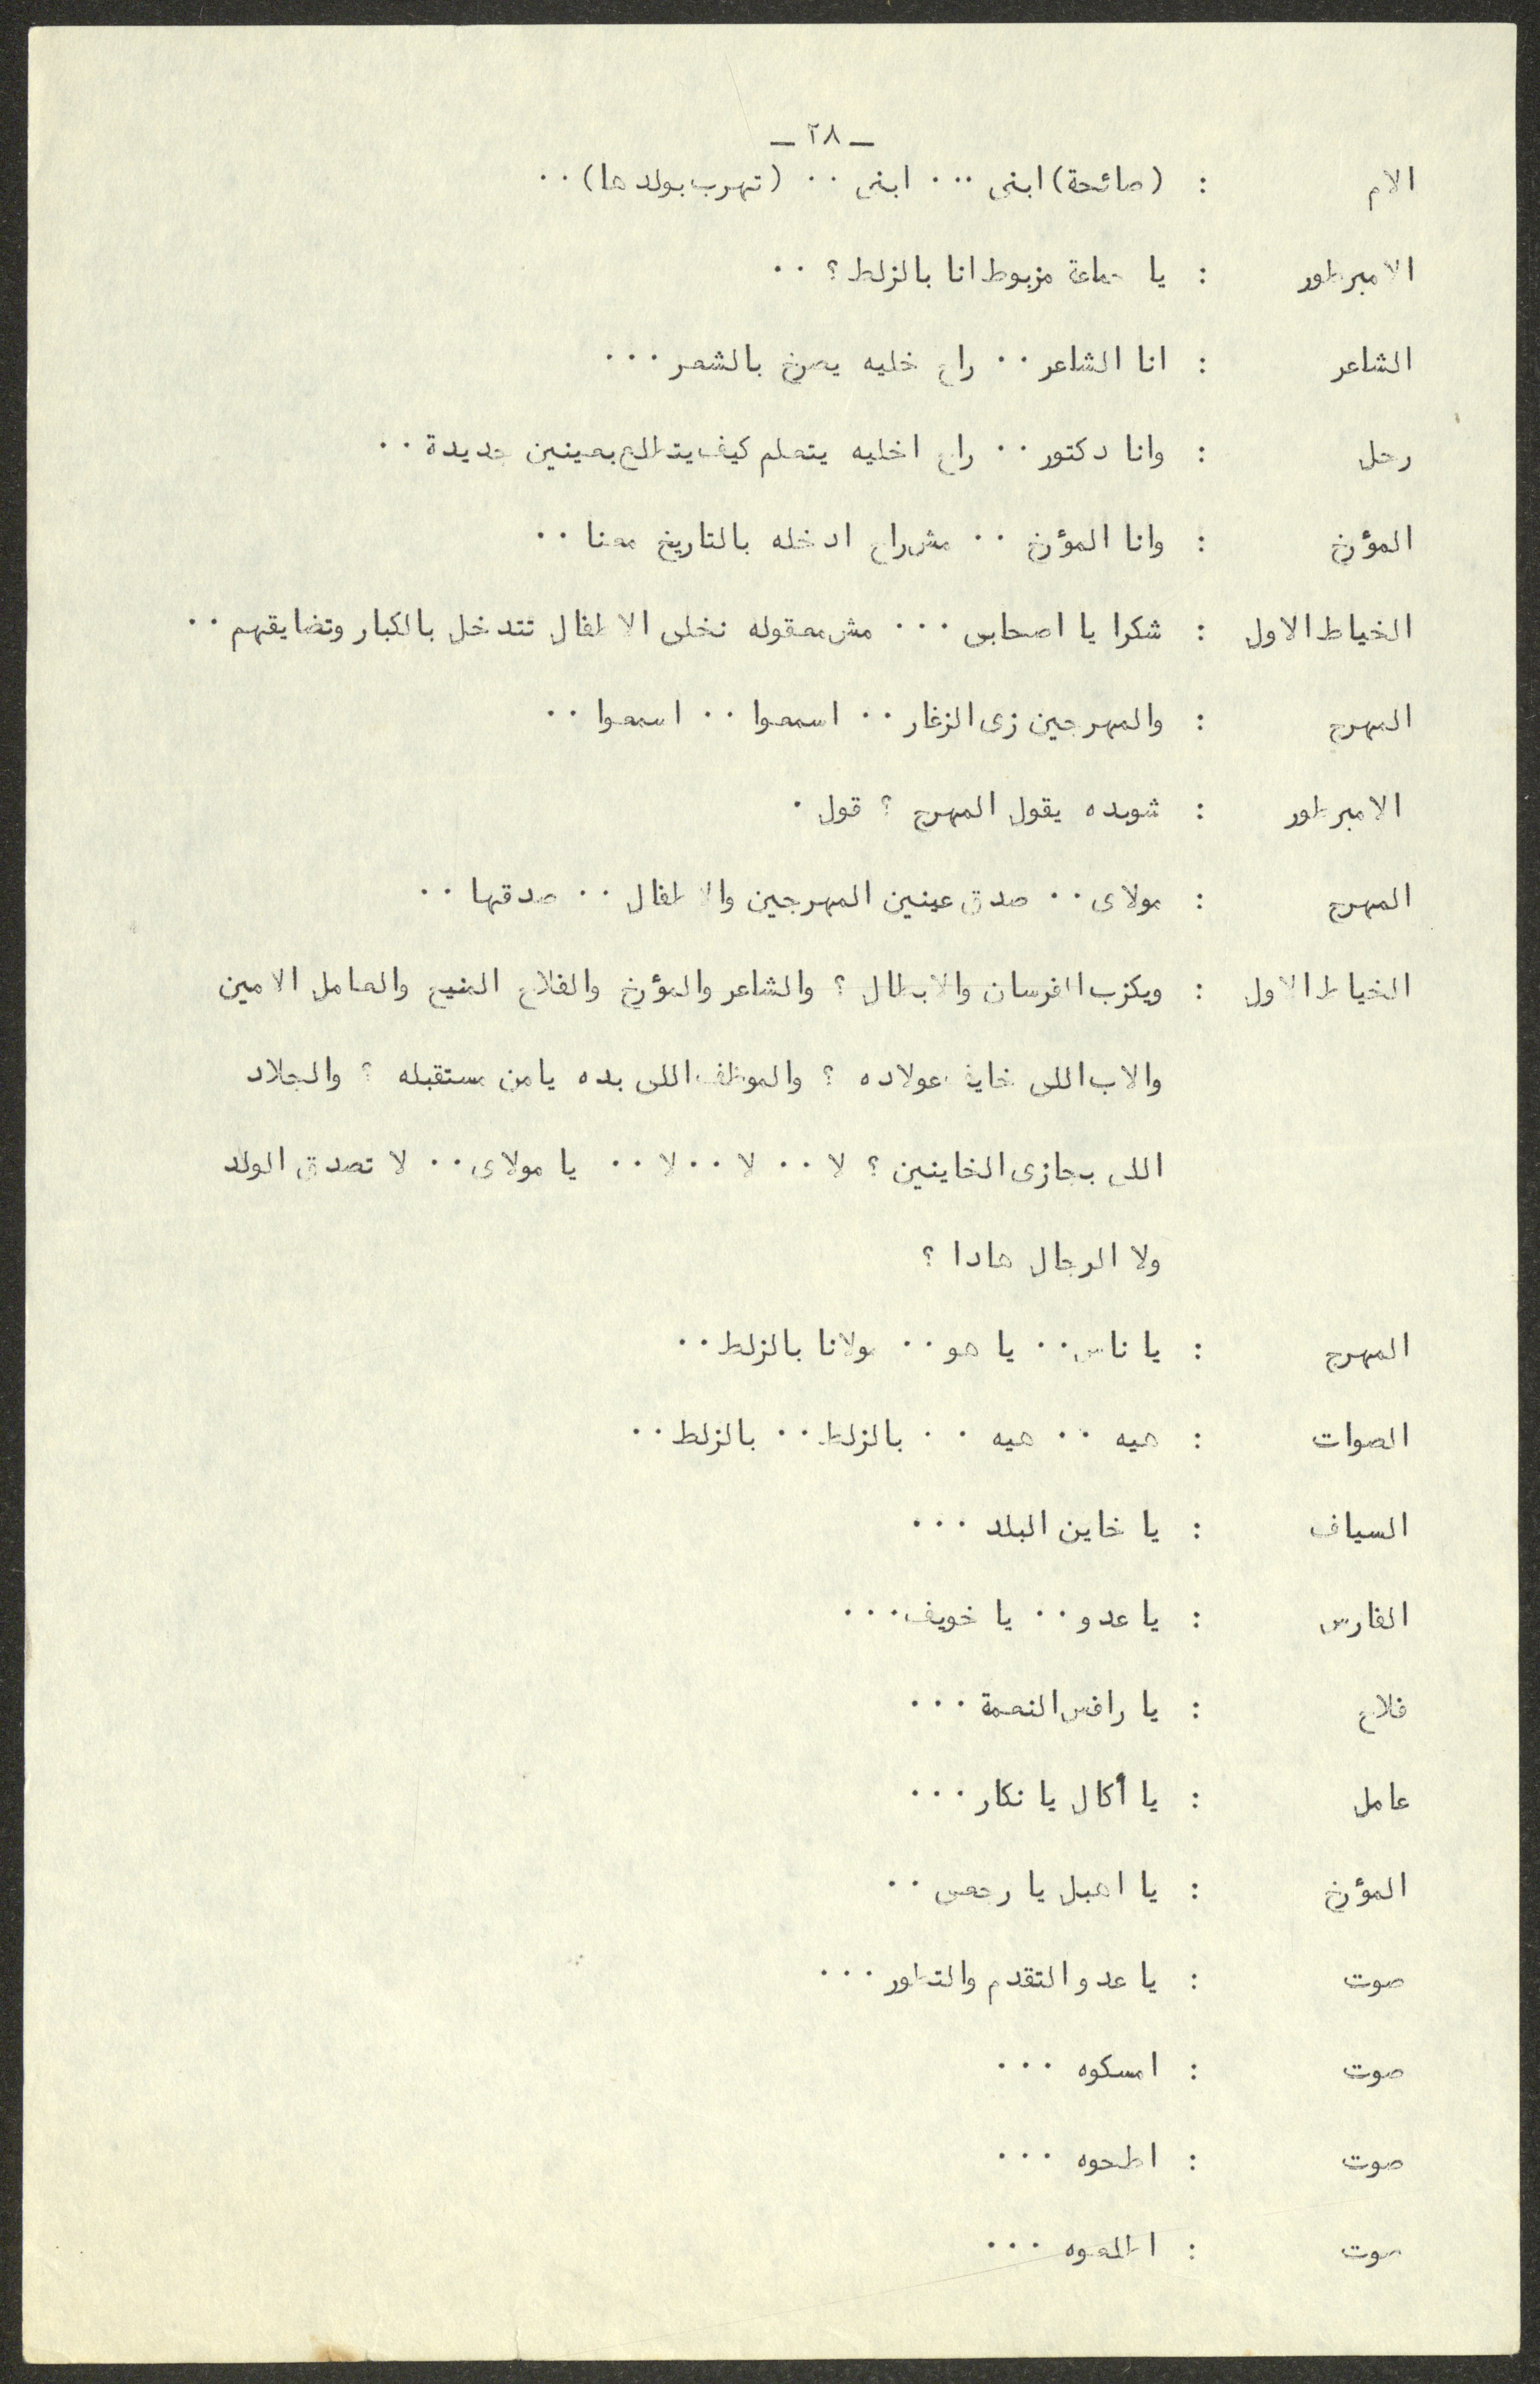 – ٢٨ –
الام : (صائحة) ابنى ... ابنى .. (تهرب بولدها) ..
الامبرطور : يا جماعة مزبوط انا بالزلط ؟ ..
الشاعر : انا الشاعر .. راح خليه يصرخ بالشعر ...
رجل : وانا دكتور .. راح اخليه يتعلم كيف يتطلع بعينين جديدة ..
المؤرخ : وانا المؤرخ .. مش راح ادخله بالتاريخ معنا ..
الخياط الاول : شكرا يا اصحابى ... مش معقوله نخلى الاطفال تتدخل بالكبار وتضايقهم ..
المهرج : والمهرجين زى الزغار .. اسمعوا .. اسمعوا ..
الامبرطور : شوبده يقول المهرج ؟ قول .
المهرج : مولاى .. صدق عينين المهرجين والاطفال .. صدقها ..
الخياط الاول : ويكزب الفرسان والابطال ؟ والشاعر والمؤرخ والفلاح المنيح والعامل الامين
والاب اللى خايف عولاده ؟ والموظف اللى بده يامن مستقبله ؟ والجلاد
اللى بجازى الخاينين ؟ لا .. لا .. لا .. يا مولاى .. لا تصدق الولد
ولا الرجال هادا ؟
المهرج : يا ناس .. يا هو .. مولانا بالزلط ..
الصوات : هيه .. هيه .. بالزلط .. بالزلط ..
السياف : يا خاين البلد ...
الفارس : يا عدو .. يا خويف ...
فلاح : يا رافس النعمة ...
عامل : يا أكال يا نكار ...
المؤرخ : يا اهبل يا رجعى ..
صوت : يا عدو التقدم والتطور ...
صوت : امسكوه ...
صوت : اطحوه ...
صوت : اطلعوه ...